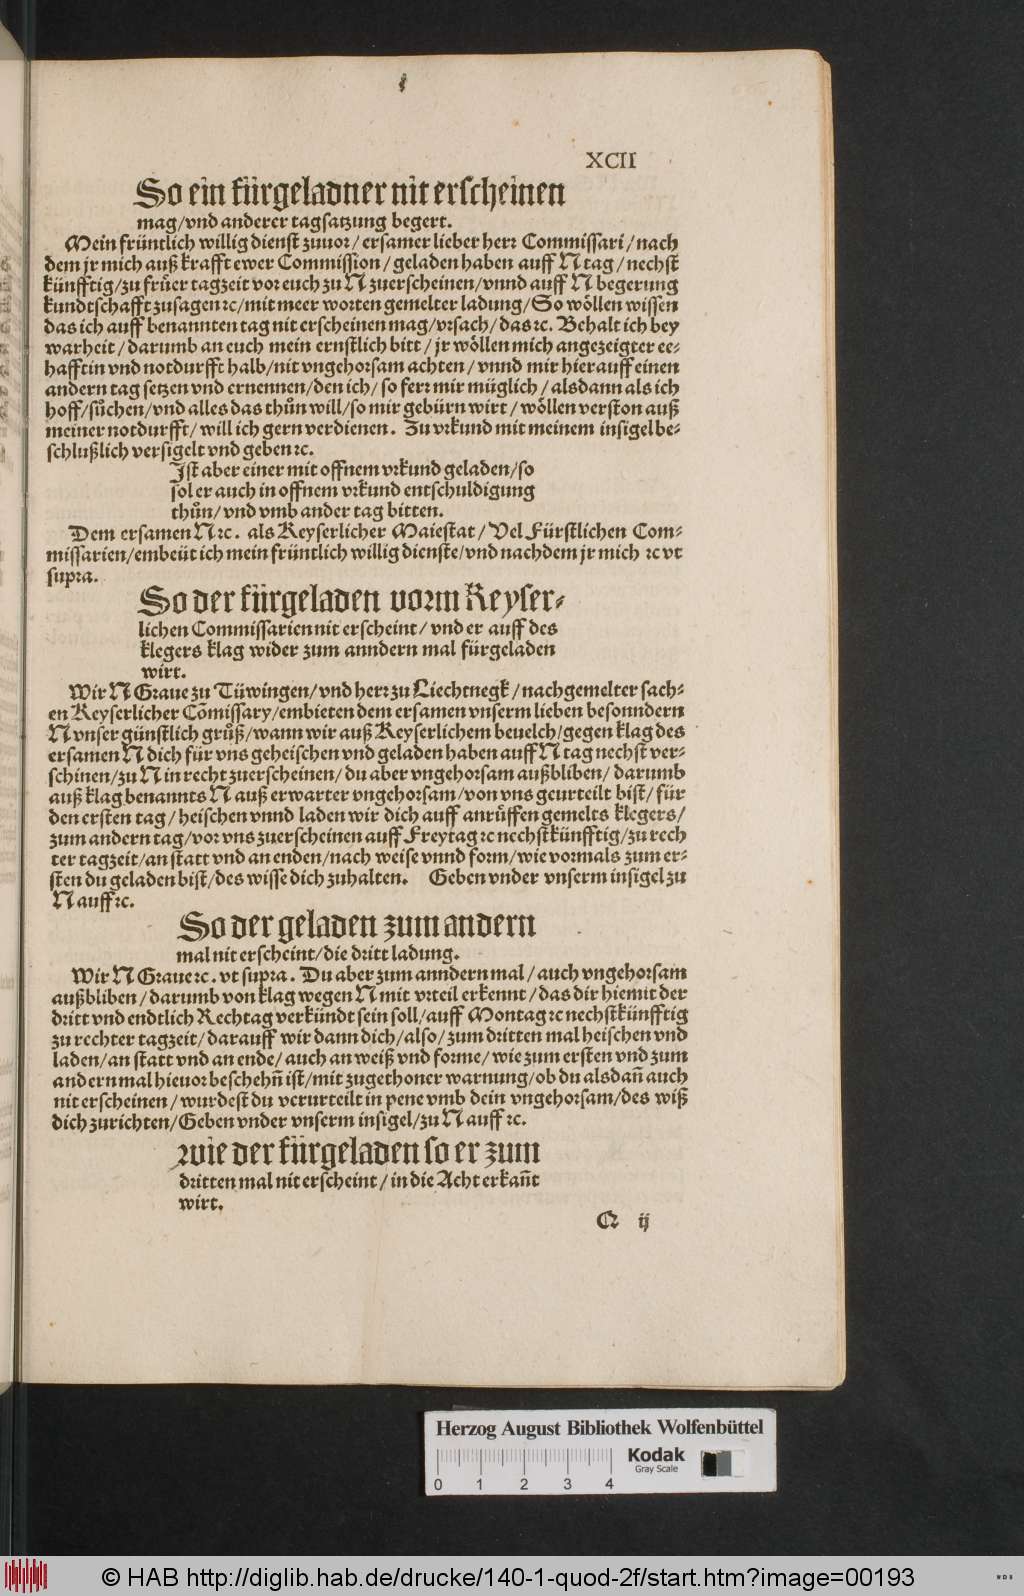 XCII
So ein fürgeladner nit erscheinen
mag/vnd anderer tagsatzung begert.
Mein früntlich willig dienst zuuor/ersamer lieber herr Commissari/nach
dem jr mich auß krafft ewer Commission/geladen haben auff N tag/nechst
künfftig/zu früer tagzeit vor euch zu N zuerscheinen/vnnd auff N begerung
kundtschafft zusagen ꝛc/mit meer worten gemelter ladung/So wöllen wissen
das ich auff benannten tag nit erscheinen mag/vrsach/das ꝛc. Behalt ich bey
warheit/darumb an euch mein ernstlich bitt/jr wöllen mich angezeigter ee-
hafftin vnd notdurfft halb/nit vngehorsam achten/vnnd mir hierauff einen
andern tag setzen vnd ernennen/den ich/so ferr mir müglich/alsdann als ich
hoff/sůchen/vnd alles das thůn will/so mir gebürn wirt/wöllen verston auß
meiner notdurfft/will ich gern verdienen. Zu vrkund mit meinem insigel be-
schlußlich versigelt vnd geben ꝛc.
Ist aber einer mit offnem vrkund geladen/so
sol er auch in offnem vrkund entschuldigung
thůn/vnd vmb ander tag bitten.
Dem ersamen N ꝛc. als Keyserlicher Maiestat/Vel Fürstlichen Com-
missarien/embeüt ich mein früntlich willig dienste/vnd nachdem jr mich ꝛc vt
supra.
So der fürgeladen vorm Keyser-
lichen Commissarien nit erscheint/vnd er auff des
klegers klag wider zum anndern mal fürgeladen
wirt.
Wir N Graue zu Tüwingen/vnd herr zu Liechtnegk/nachgemelter sach-
en Keyserlicher Cōmissary/embieten dem ersamen vnserm lieben besonndern
N vnser günstlich grůß/wann wir auß Keyserlichem beuelch/gegen klag des
ersamen N dich für vns geheischen vnd geladen haben auff N tag nechst ver-
schinen/zu N in recht zuerscheinen/du aber vngehorsam außbliben/darumb
auß klag benannts N auß erwarter vngehorsam/von vns geurteilt bist/für
den ersten tag/heischen vnnd laden wir dich auff anrůffen gemelts klegers/
zum andern tag/vor vns zuerscheinen auff Freytag ꝛc nechstkünfftig/zu rech
ter tagzeit/an statt vnd an enden/nach weise vnnd form/wie vormals zum er-
sten du geladen bist/des wisse dich zuhalten. Geben vnder vnserm insigel zu
N auff ꝛc.
So der geladen zum andern
mal nit erscheint/die dritt ladung.
Wir N Graue ꝛc. vt supra. Du aber zum anndern mal/auch vngehorsam
außbliben/darumb von klag wegen N mit vrteil erkennt/das dir hiemit der
dritt vnd endtlich Rechtag verkündt sein soll/auff Montag ꝛc nechstkünfftig
zu rechter tagzeit/darauff wir dann dich/also/zum dritten mal heischen vnd
laden/an statt vnd an ende/auch an weiß vnd forme/wie zum ersten vnd zum
andern mal hieuor beschehn̄ ist/mit zugethoner warnung/ob du alsdan̄ auch
nit erscheinen/wurdest du verurteilt in pene vmb dein vngehorsam/des wiß
dich zurichten/Geben vnder vnserm insigel/zu N auff ꝛc.
Wie der fürgeladen so er zum
dritten mal nit erscheint/in die Acht erkan̄t
wirt.
Q ij
Herzog August Bibliothek Wolfenbüttel
Kodak
Gray Scale
0 1 2 3 4
© HAB http://diglib.hab.de/drucke/140-1-quod-2f/start.htm?image=00193